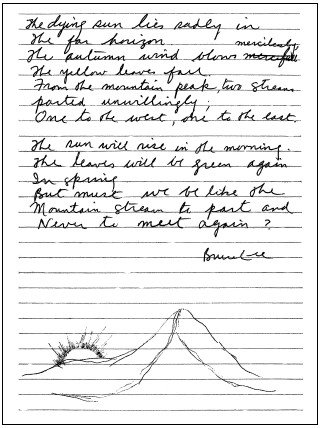 The dying sun lies sadly in
the far horizon.
mercilessly
The autumn wind blows merciful
The yellow leaves fall.
From the mountain peak, two streams
parted unwillingly;
One to the west, one to the east.
The sun will rise in the morning.
The leaves will be green again
In spring
But must we be like the
Mountain stream to part and
Never to meet again?
Bruce Lee